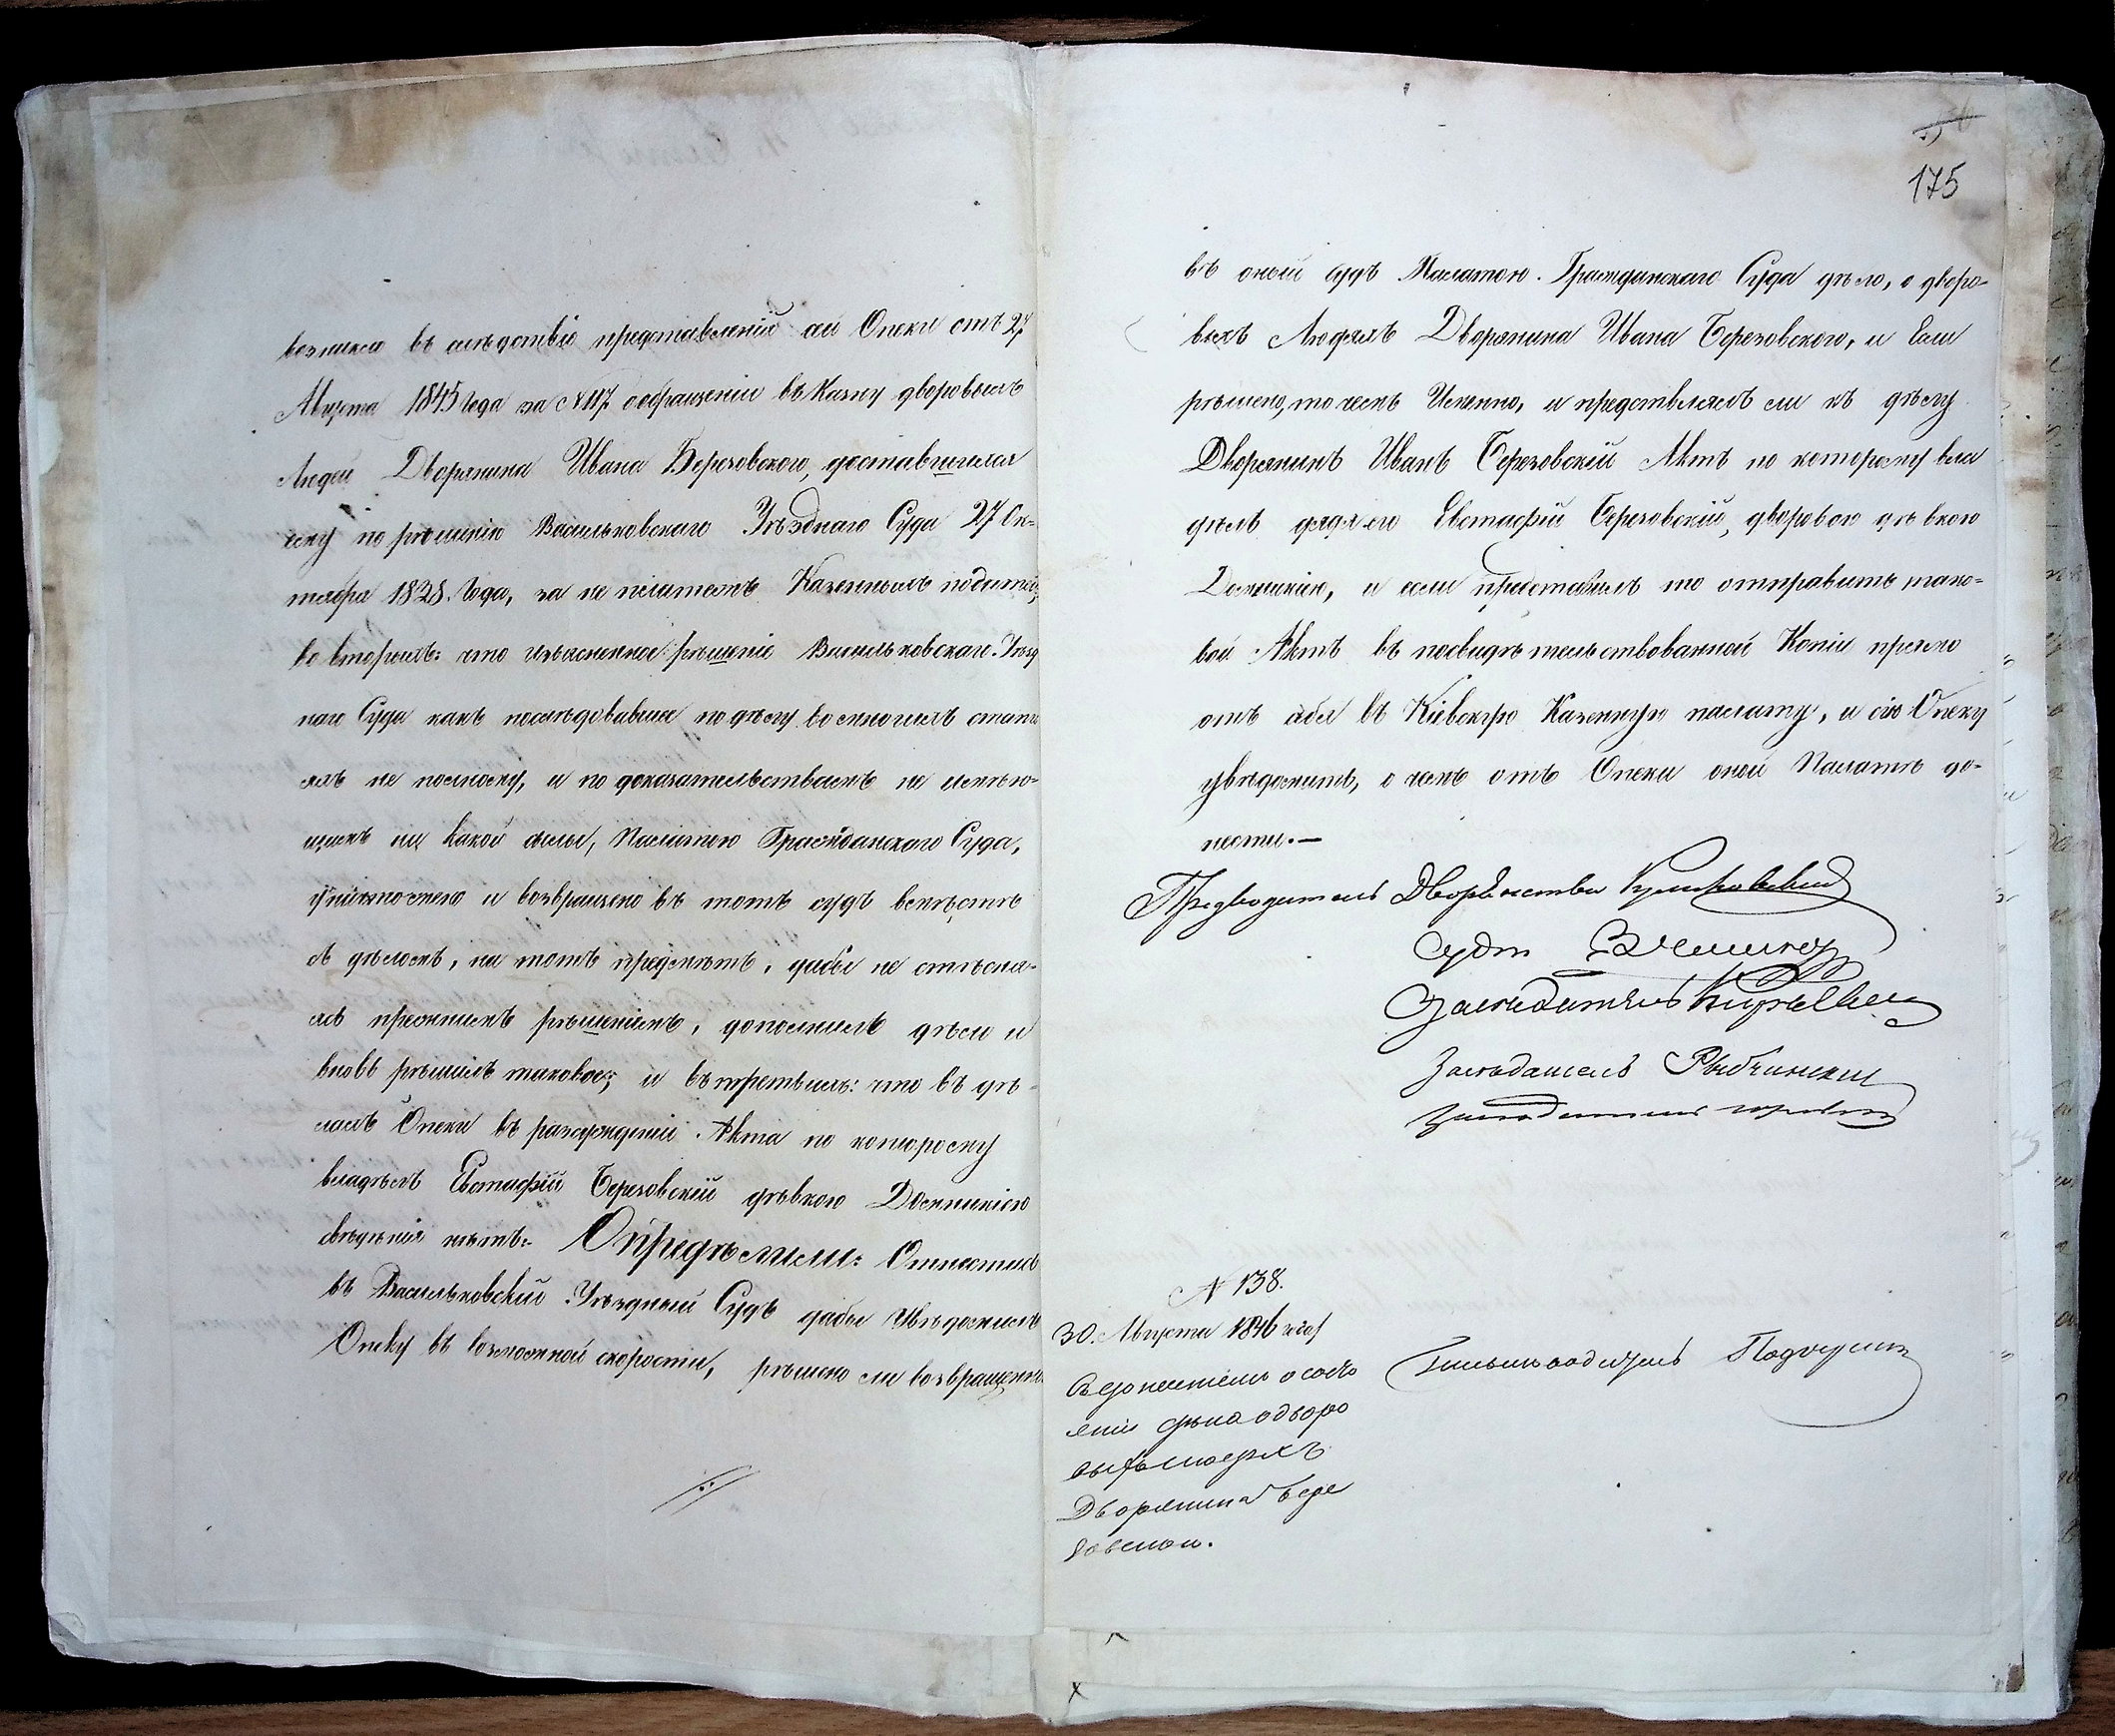 возникло въ слѣдствіе представленій сей Опеки отъ 27
Августа 1845 Года за № 117. о обращеніи въ Казну дворовыхъ
Людей Дворянина Ивана Березовского, доставшихся
ему по рѣшенію Васильковскаго Уѣзднаго Суда 27 Ок-
тября 1828. Года, за не платежъ Казенныхъ податей;
во вторыхъ: что изъясненное рѣшеніе Васильковскаго Уѣзд
наго Суда какъ послѣдовавшее по дѣлу во многихъ стать
яхъ не полному, и по доказательствамъ не имѣю-
щимъ ни какой силы, Палатою Гражданскаго Суда,
уничтожено и возвращено въ тотъ судъ вмѣстѣ
съ дѣломъ, на тотъ предметъ, дабы не стѣсня-
ясь прежнимъ рѣшеніемъ, дополнилъ дѣло и
вновь рѣшилъ таковое; и въ третьихъ: что въ дѣ-
лахъ Опеки въ разсужденіи Акта по которому
владѣлъ Евстафій Березовскій дѣвкою Домникіею
свѣдѣнія нѣтъ. Опредѣлили: Отнестись
въ Васильковский Уѣздный Судъ дабы Увѣдомилъ
Опеку въ возможной скорости, рѣшено ли возвращенно
175
въ оный судъ Палатою Гражданскаго Суда дѣло, о дворо-
выхъ Людяхъ Дворянина Ивана Березовского, и Если
рѣшено, то чемъ Именно, и представлялъ ли къ дѣлу
Дворянинъ Иванъ Березовскій Актъ по которому вла
дѣлъ дядя его Евстафій Березовскій, дворовою дѣвкою
Домникіею, и если представилъ то отправить тако-
вой Актъ въ посвидѣтельствованной Копіи прямо
отъ себя въ Кіевскую Казенную палату, и сію Опеку
увѣдомить, о чемъ отъ Опеки оной Палатѣ до-
нести.—
Предводитель Дворянства
Судья
Засѣдатель
Засѣдатель Рыбчинский
Засѣдатель
№ 138.
30. Августа 1846 года
Съ донесеніемъ о состо
яніи дѣла о дворо
выхъ людяхъ
Дворянина Бере
зовскои.
Письмоводитель